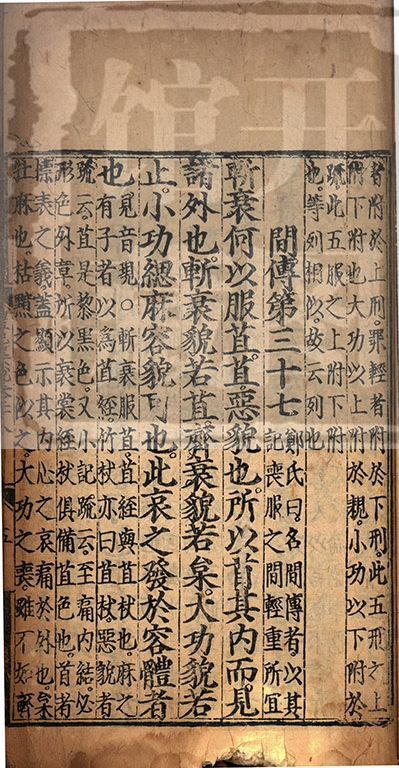 者附於上刑罪輕者附於下刑此五刑之上
附下附也大功以上附於親小功以下附於
疏此五服之上附下附
也等列相似故云列也
間傳第三十七
鄭氏曰名間傳者以其
記喪服之間輕重所宜
斬衰何以服苴苴惡貌也所以首其內而見
諸外也斬衰貌若苴齊衰貌若枲大功貌若
止小功緦麻容貌可也此哀之發於容體者
也
見音現○斬衰服苴苴絰與苴杖也麻之
有子者以為苴絰竹杖亦曰苴杖惡貌者
疏云苴是黎黑色又小記疏云至痛內結必
形色外章所以衰裳絰杖俱備苴色也首者
標表之義蓋顯示其內心之哀痛於外也枲
牡麻也枯黯之色似之大功之喪雖不如斬